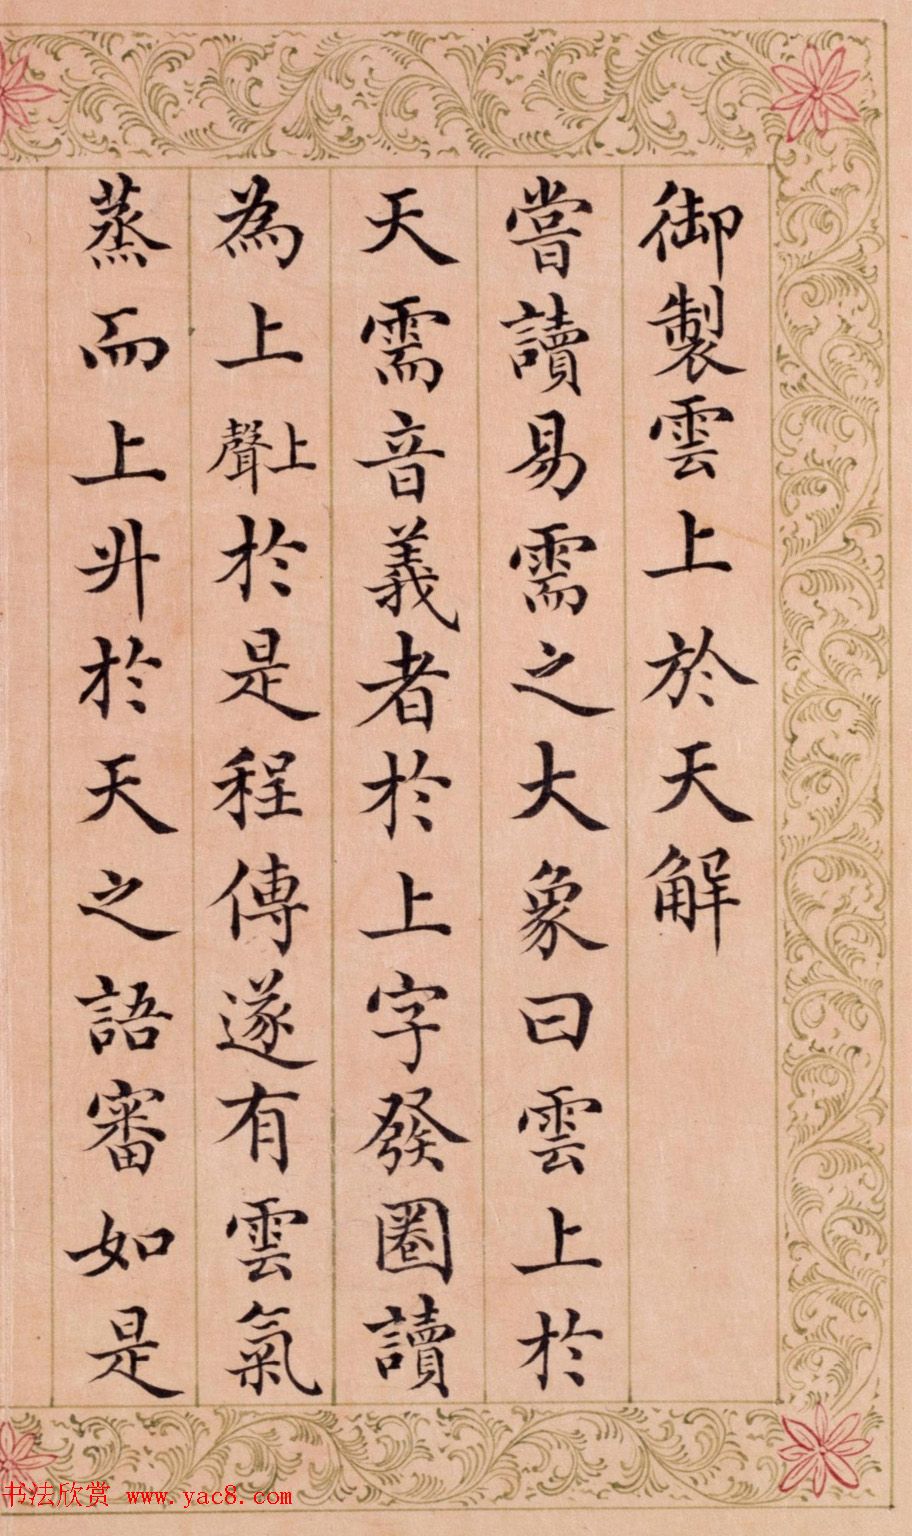 御製雲上於天解
嘗讀易需之大象曰雲上於
天需音義者於上字發圈讀
為上上聲於是程傳遂有雲氣
蒸而上升於天之語審如是
书法欣赏 www.yac8.com